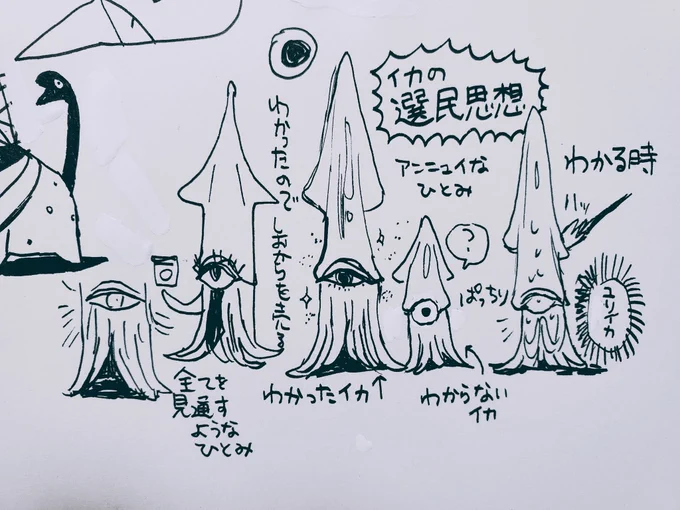 イカの
選民思想
わかる時
アンニュイな
ひとみ
？
ぱっちり
ユリイカ
わかったので しおからを売る
わかったイカ↑
わからない
イカ
全てを
見通す
ような
ひとみ